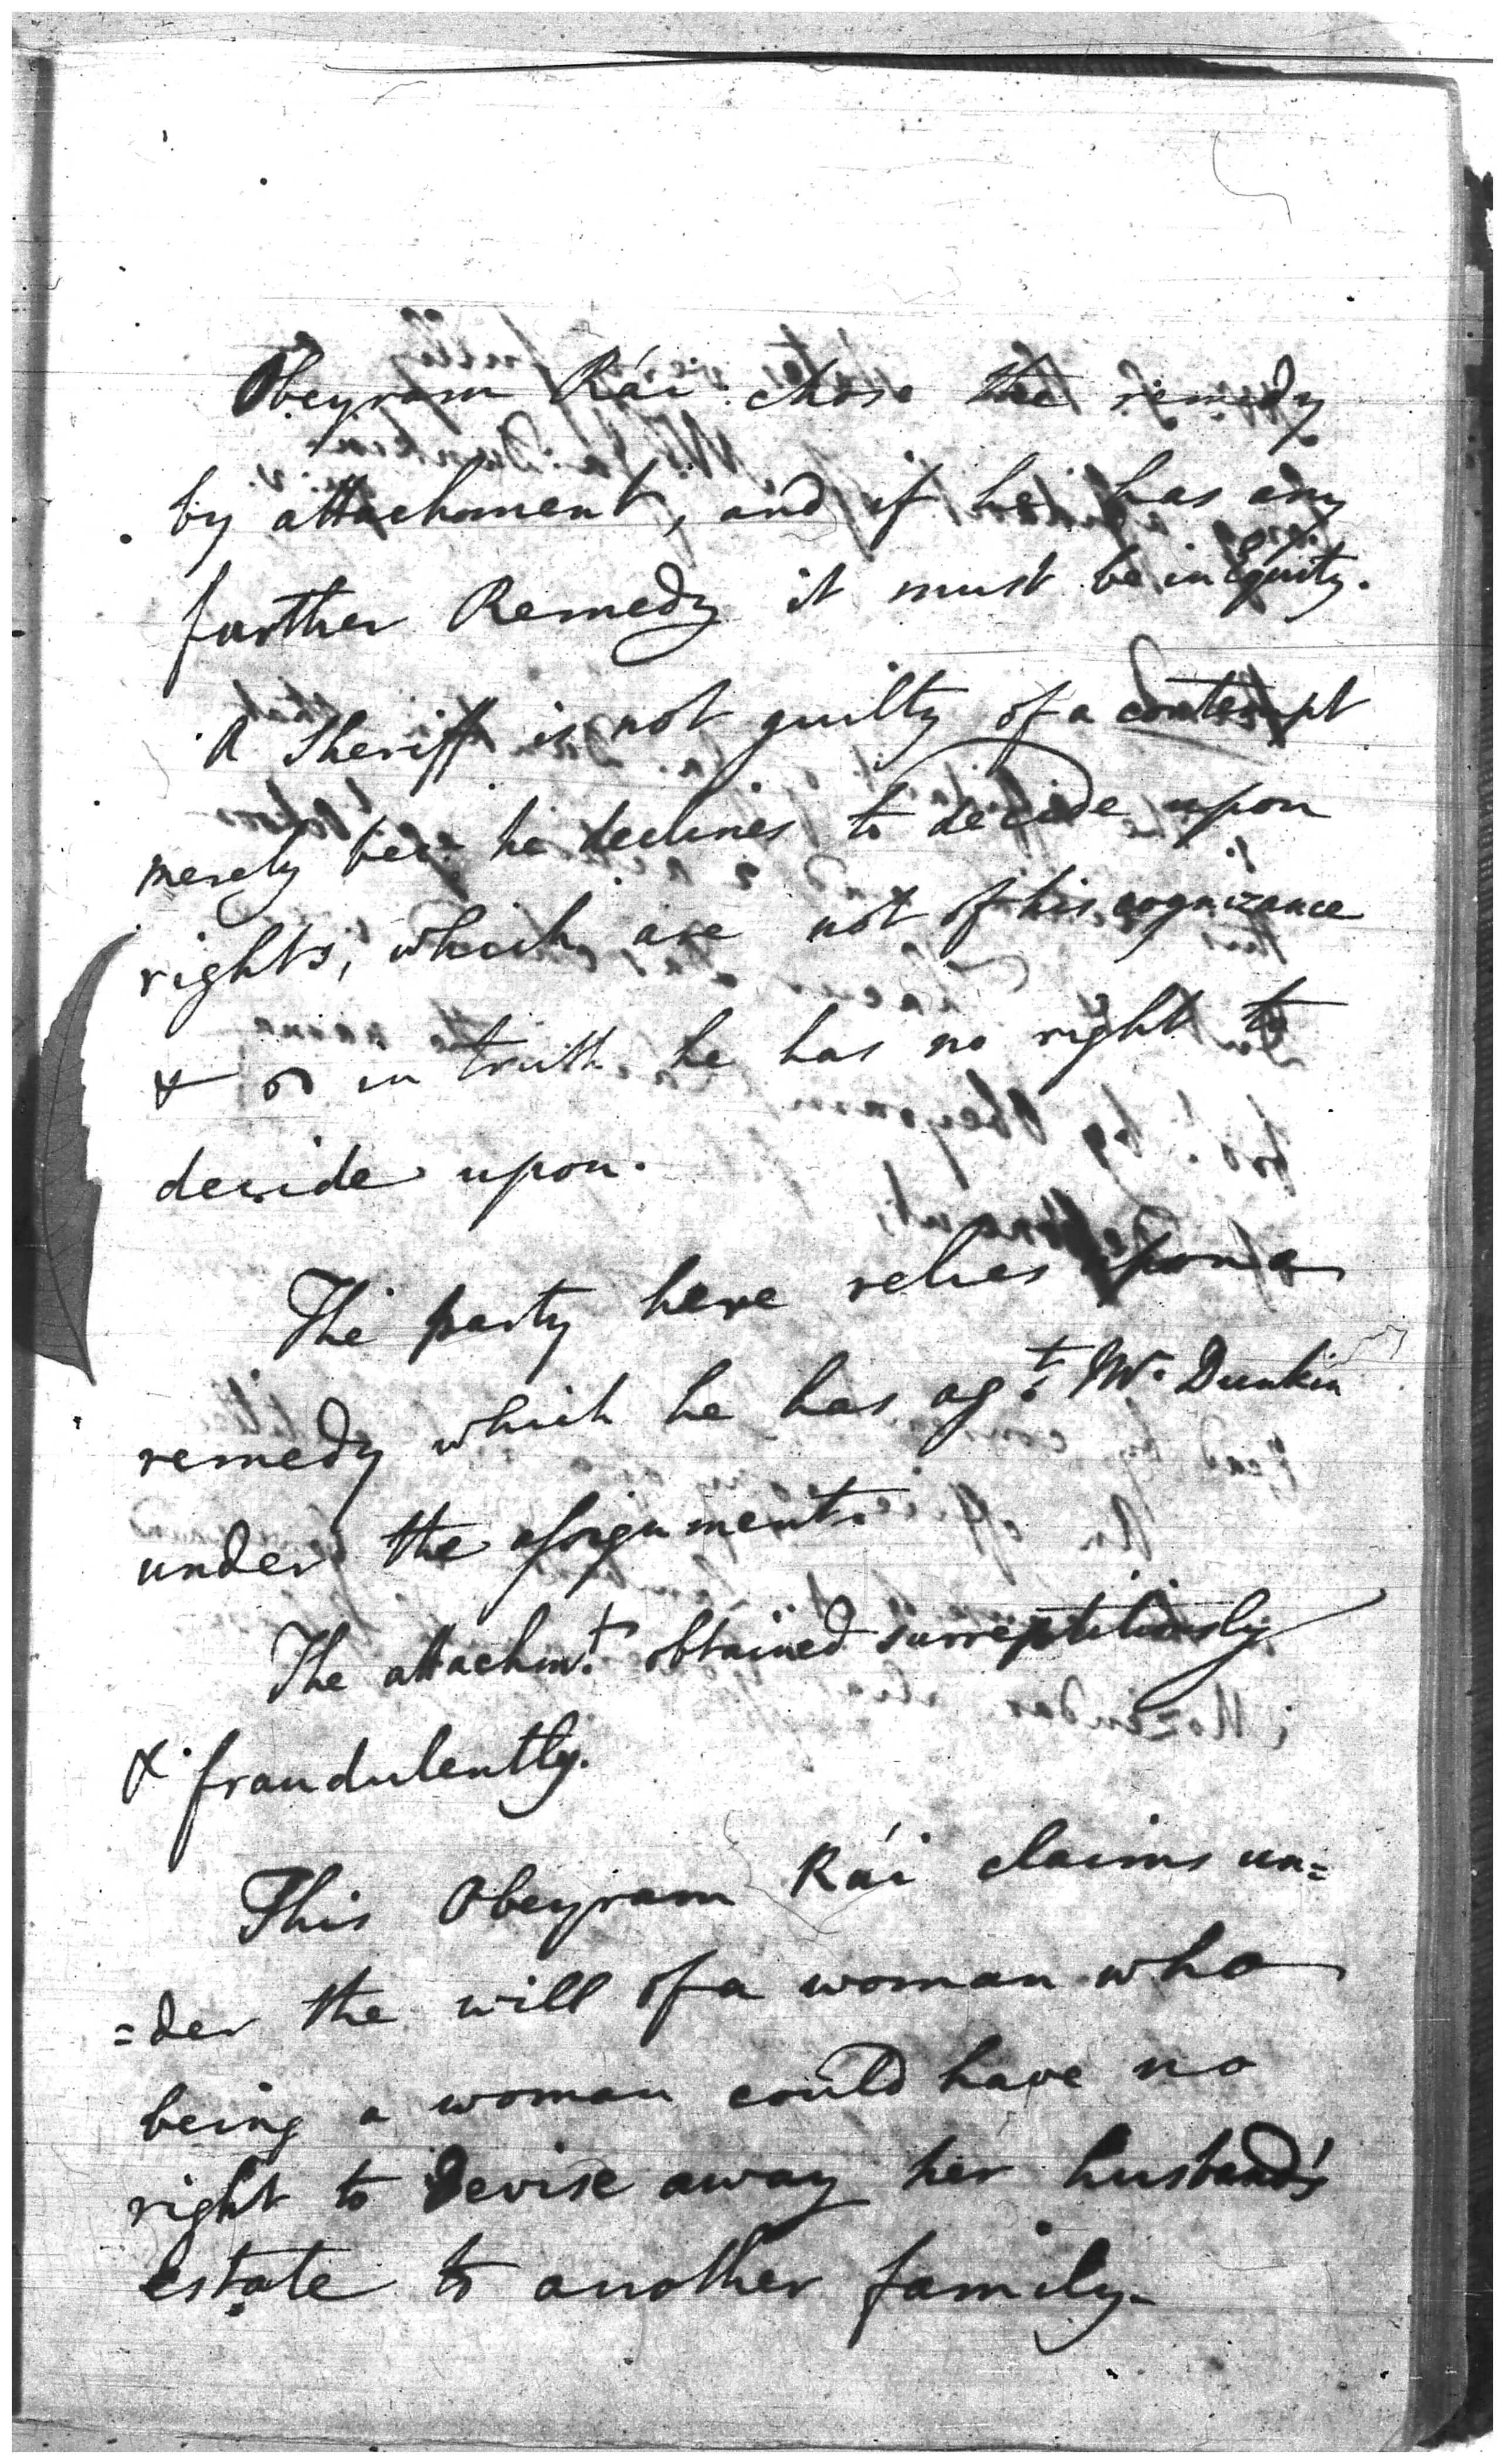 Obeyram Rái chose the remedy
by attachment, and if he has any
further Remedy it must be in Equity.
A Sheriff is not guilty of a contempt
merely bece he declines to decide upon
rights, which are not of his cognizance
& in truth he has no right to
decide upon.
The party here relies upon a
remedy which he has agt Mr Dunkin
under the assignment.
The attachmt obtained surreptitiously
& fraudulently.
This Obeyram Rái claims un=
=der the will of a woman who
being a woman could have no
right to devise away her husband's
estate to another family.